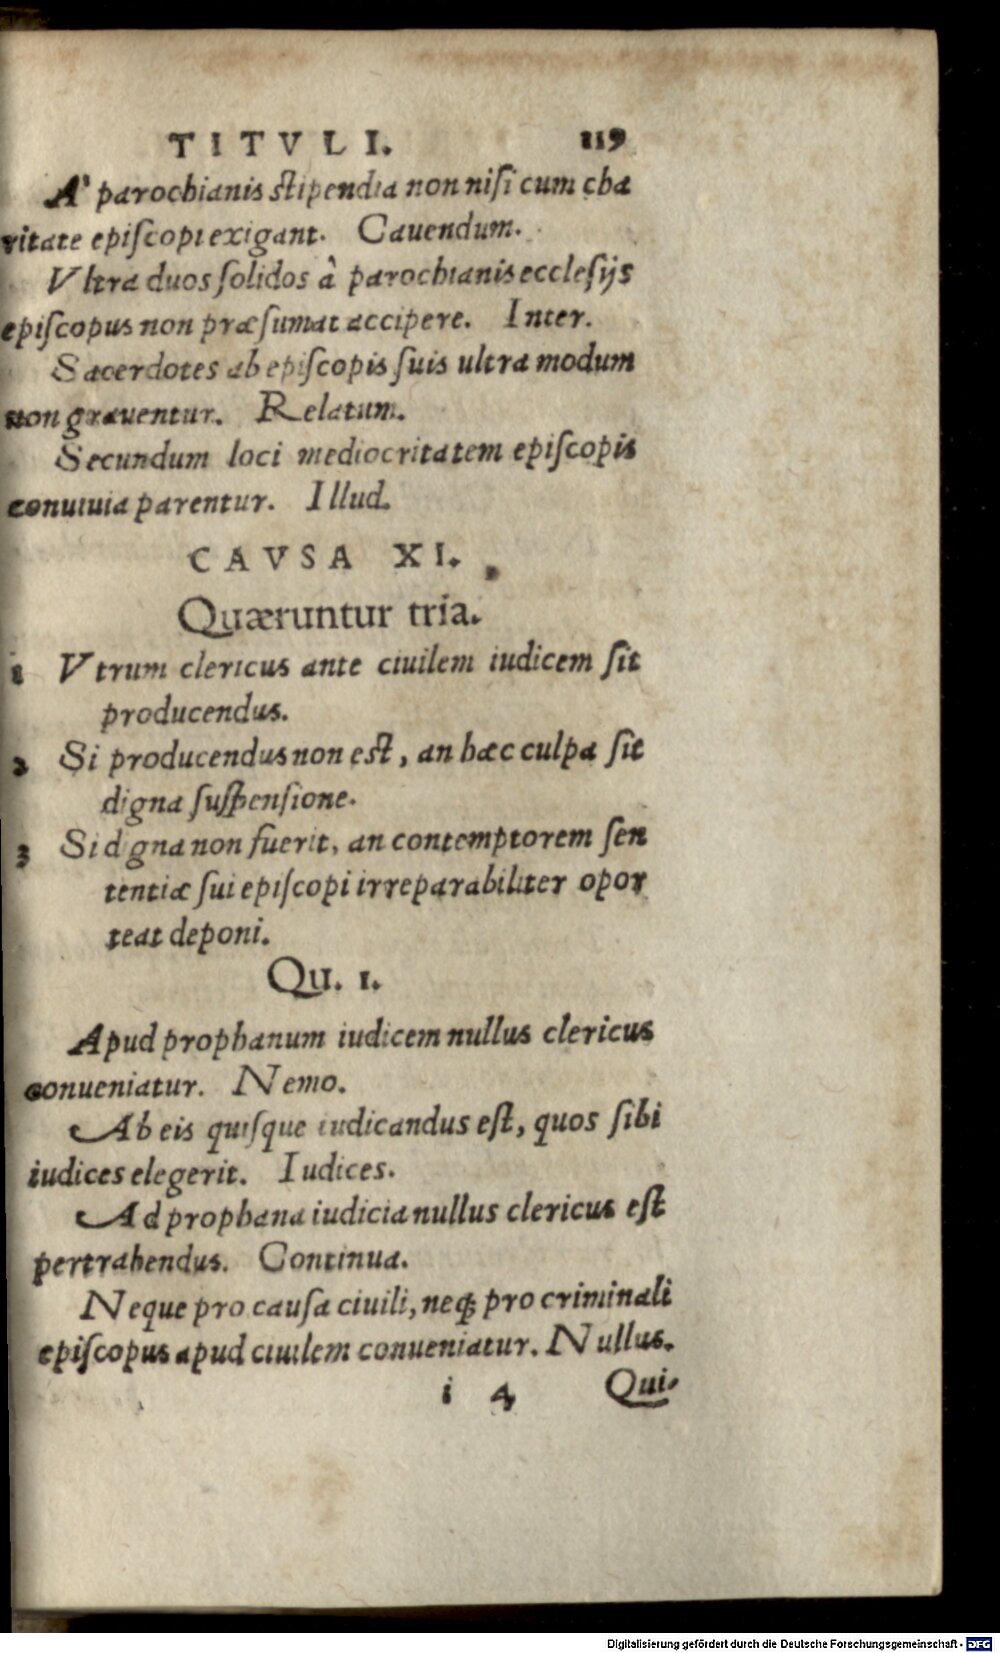 TITVLI. 119
A' parochianis stipendia non nisi cum cha
ritate episcopi exigant. Cauendum.
Vltra duos solidos à parochianis ecclesijs
episcopus non præsumat accipere. Inter.
Sacerdotes ab episcopis suis ultra modum
non grauentur. Relatum.
Secundum loci mediocritatem episcopis
conuiuia parentur. Illud.
CAVSA XI.
Quæruntur tria.
1 Vtrum clericus ante ciuilem iudicem sit
producendus.
2 Si producendus non est, an hæc culpa sit
digna suspensione.
3 Si digna non fuerit, an contemptorem sen
tentiæ sui episcopi irreparabiliter opor
teat deponi.
Qu. 1.
Apud prophanum iudicem nullus clericus
conueniatur. Nemo.
Ab eis quisque iudicandus est, quos sibi
iudices elegerit. Iudices.
Ad prophana iudicia nullus clericus est
pertrahendus. Continua.
Neque pro causa ciuili, neq; pro criminali
episcopus apud ciuilem conueniatur. Nullus.
i 4 Qui-
Digitalisierung gefördert durch die Deutsche Forschungsgemeinschaft - DFG